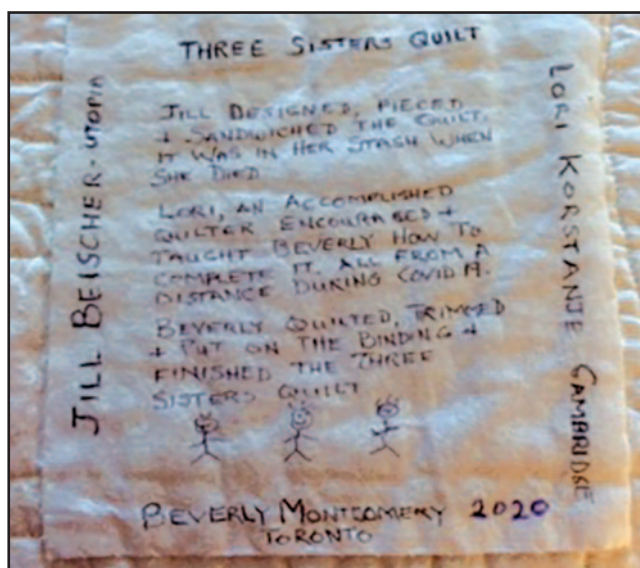 THREE SISTERS QUILT
JILL DESIGNED, PIECED
+ SANDWICHED THE QUILT.
IT WAS IN HER STASH WHEN
SHE DIED
LORI, AN ACCOMPLISHED
QUILTER ENCOURAGED +
TAUGHT BEVERLY HOW TO
COMPLETE IT. ALL FROM A
DISTANCE DURING COVID 19.
BEVERLY QUILTED, TRIMMED
+ PUT ON THE BINDING +
FINISHED THE THREE
SISTERS QUILT
JILL BEISCHER - UTOPIA
LORI KORSTANJE CAMBRIDGE
BEVERLY MONTGOMERY 2020
TORONTO